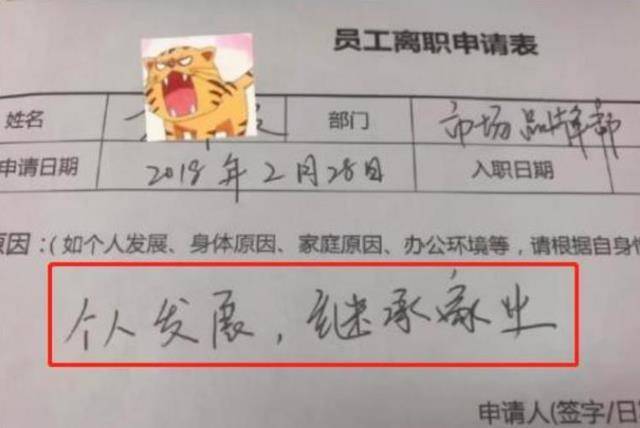 员工离职申请表
姓名 部门 市场品牌部
申请日期 2018年2月28日 入职日期
原因:(如个人发展、身体原因、家庭原因、办公环境等，请根据自身情
个人发展，继承家业
申请人(签字/日